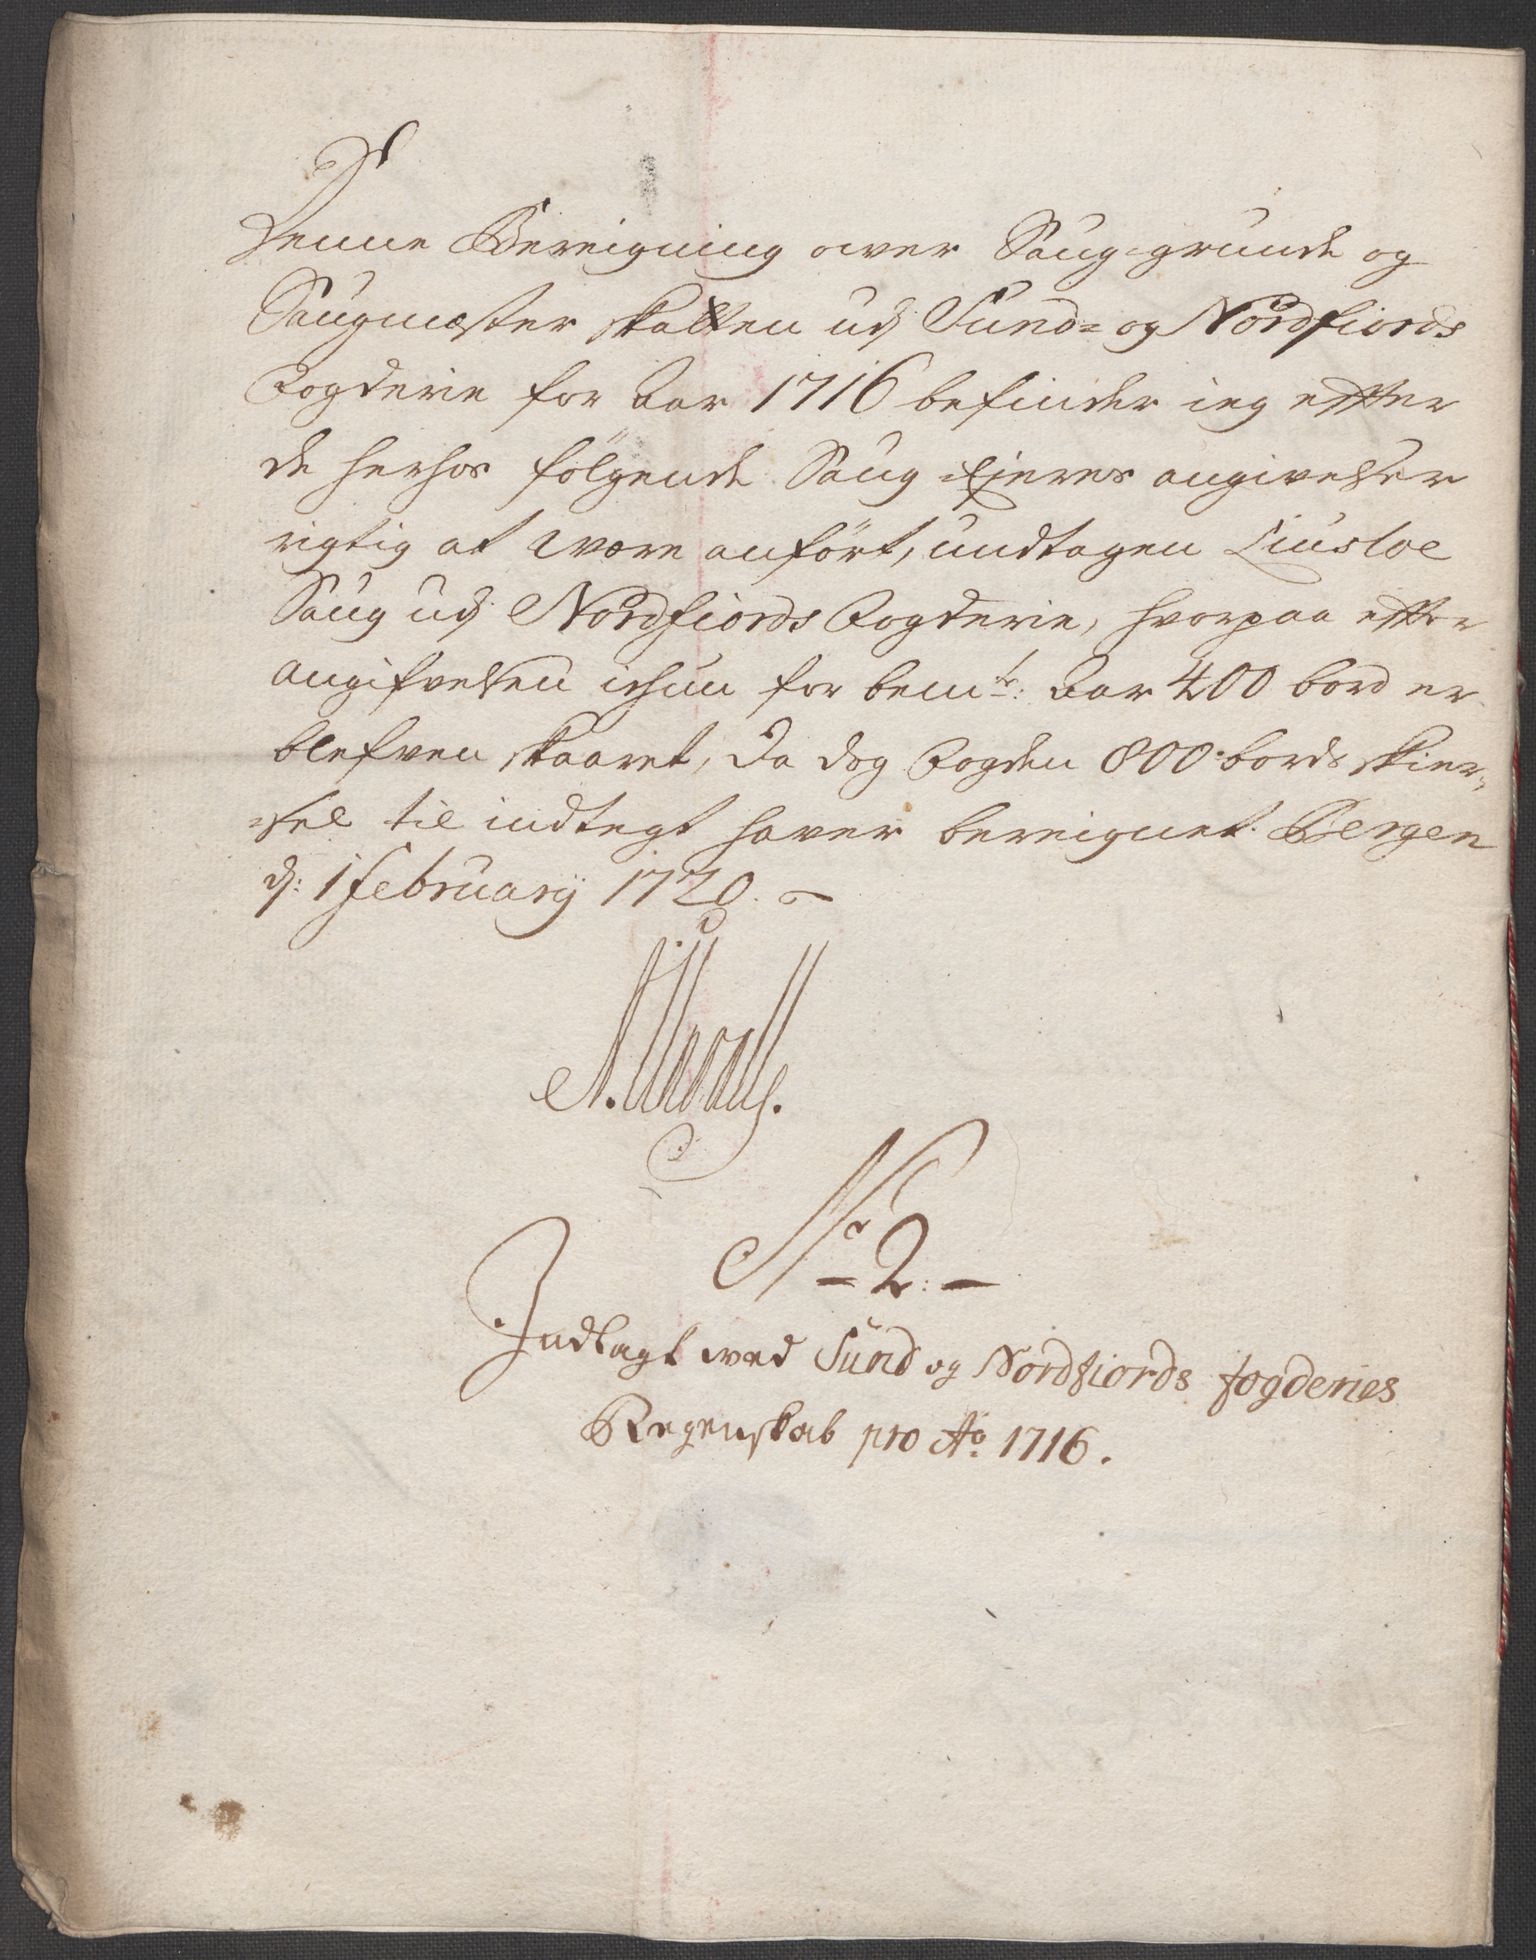 Denne Bereigning over Saug-grunde og
Saugmester skatten udj Sund= og Nordfiords
Fogderie for Aar 1716 befinder ieg effter
de herhos fölgende Saug Ejeres angivelser
rigtig at være anfört, undtagen Liusloe
Saug udj Nordfiords Fogderie, hvorpaa effter
angifvelsen ichun for bemte: Aar 400 bord er
blefven skaaret, da dog Fogden 800 bords skier=
=sel til indtegt haver bereignet. Bergen
dj: 1 February 1720.
No 2.
Indlagt ved Sund og Nordfiords fogderies
Regenskab pro Ao 1716.